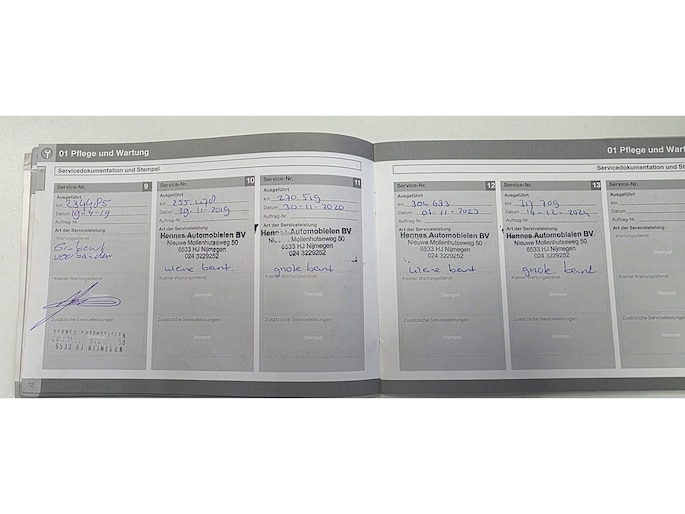 01 Pflege und Wartung
Servicedokumentation und Stempel
Service-Nr. 9
Ausgeführt
km 234485
Datum 19-4-19
Auftrag-Nr.
Art der Serviceleistung
Gr beurt
voorbanden
Wartungsdienst
Kleiner Wartungsdienst
Zusätzliche Serviceleistungen
HENNES AUTOMOBIELEN
6533 HJ NIJMEGEN
Service-Nr. 10
Ausgeführt
km 255.478
Datum 29-11-2019
Auftrag-Nr.
Art der Serviceleistung
Hennes Automobielen BV
Nieuwe Mollenhutseweg 50
6533 HJ Nijmegen
024 3229252
kleine beurt.
Kleiner Wartungsdienst
Stempel
Zusätzliche Serviceleistungen
Stempel
Service-Nr. 11
Ausgeführt
km 270.519
Datum 30-11-2020
Auftrag-Nr.
Art der Serviceleistung
Hennes Automobielen BV
Nieuwe Mollenhutseweg 50
6533 HJ Nijmegen
024 3229252
grote beurt
Kleiner Wartungsdienst
Stempel
Zusätzliche Serviceleistungen
Stempel
12
01 Pflege und Wart
Servicedokumentation und Ste
Service-Nr. 12
Ausgeführt
km 304.683
Datum 01-11-2023
Auftrag-Nr.
Art der Serviceleistung
Hennes Automobielen BV
Nieuwe Mollenhutseweg 50
6533 HJ Nijmegen
024 3229252
kleine beurt
Kleiner Wartungsdienst
Stempel
Zusätzliche Serviceleistungen
Stempel
Service-Nr. 13
Ausgeführt
km 317.709
Datum 16-12-2024
Auftrag-Nr.
Art der Serviceleistung
Hennes Automobielen BV
Nieuwe Mollenhutseweg 50
6533 HJ Nijmegen
024 3229252
grote beurt
Kleiner Wartungsdienst
Stempel
Zusätzliche Serviceleistungen
Stempel
Service-Nr.
Ausgeführt
km
Datum
Auftrag-Nr.
Art der Serviceleistung
Wartungsdienst
Kleiner Wartungsdienst
Zusätzliche Serviceleistungen